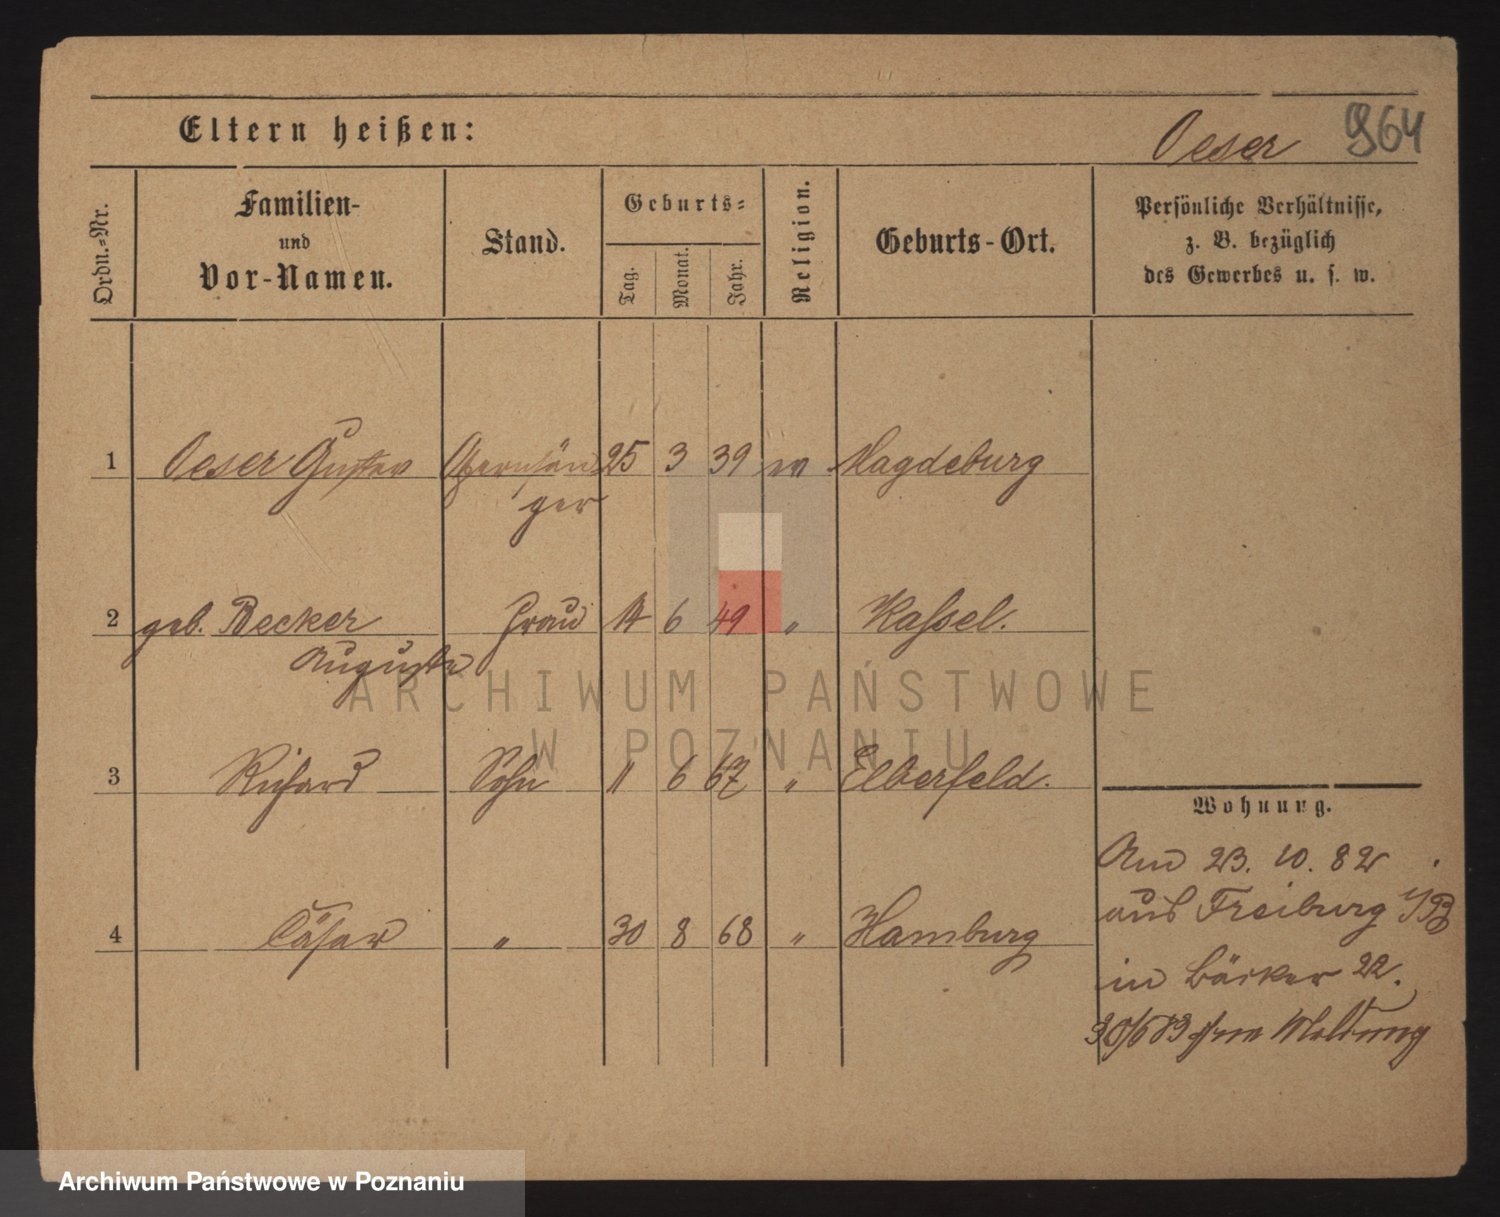 Eltern heißen:
Oeser 964
Ordn.=Nr.
Familien-
und
Vor-Namen.
Stand.
Geburts=
Tag.
Monat.
Jahr.
Religion.
Geburts-Ort.
Persönliche Verhältnisse,
z. B. bezüglich
des Gewerbes u. s. w.
1 Oeser Gustav Opernsän 25 3 39 Magdeburg
ger
2 geb. Becker Frau 14 6 49 " Kassel.
Auguste
ARCHIWUM PAŃSTWOWE
W POZNANIU
3 Richard Sohn 11 6 67 " Elberfeld.
Wohnung.
Am 23. 10. 82
aus Freiburg i/B
4 Cäsar " 30 8 68 " Hamburg
in Bäcker 22.
30/6 83 ohne Meldung
Archiwum Państwowe w Poznaniu